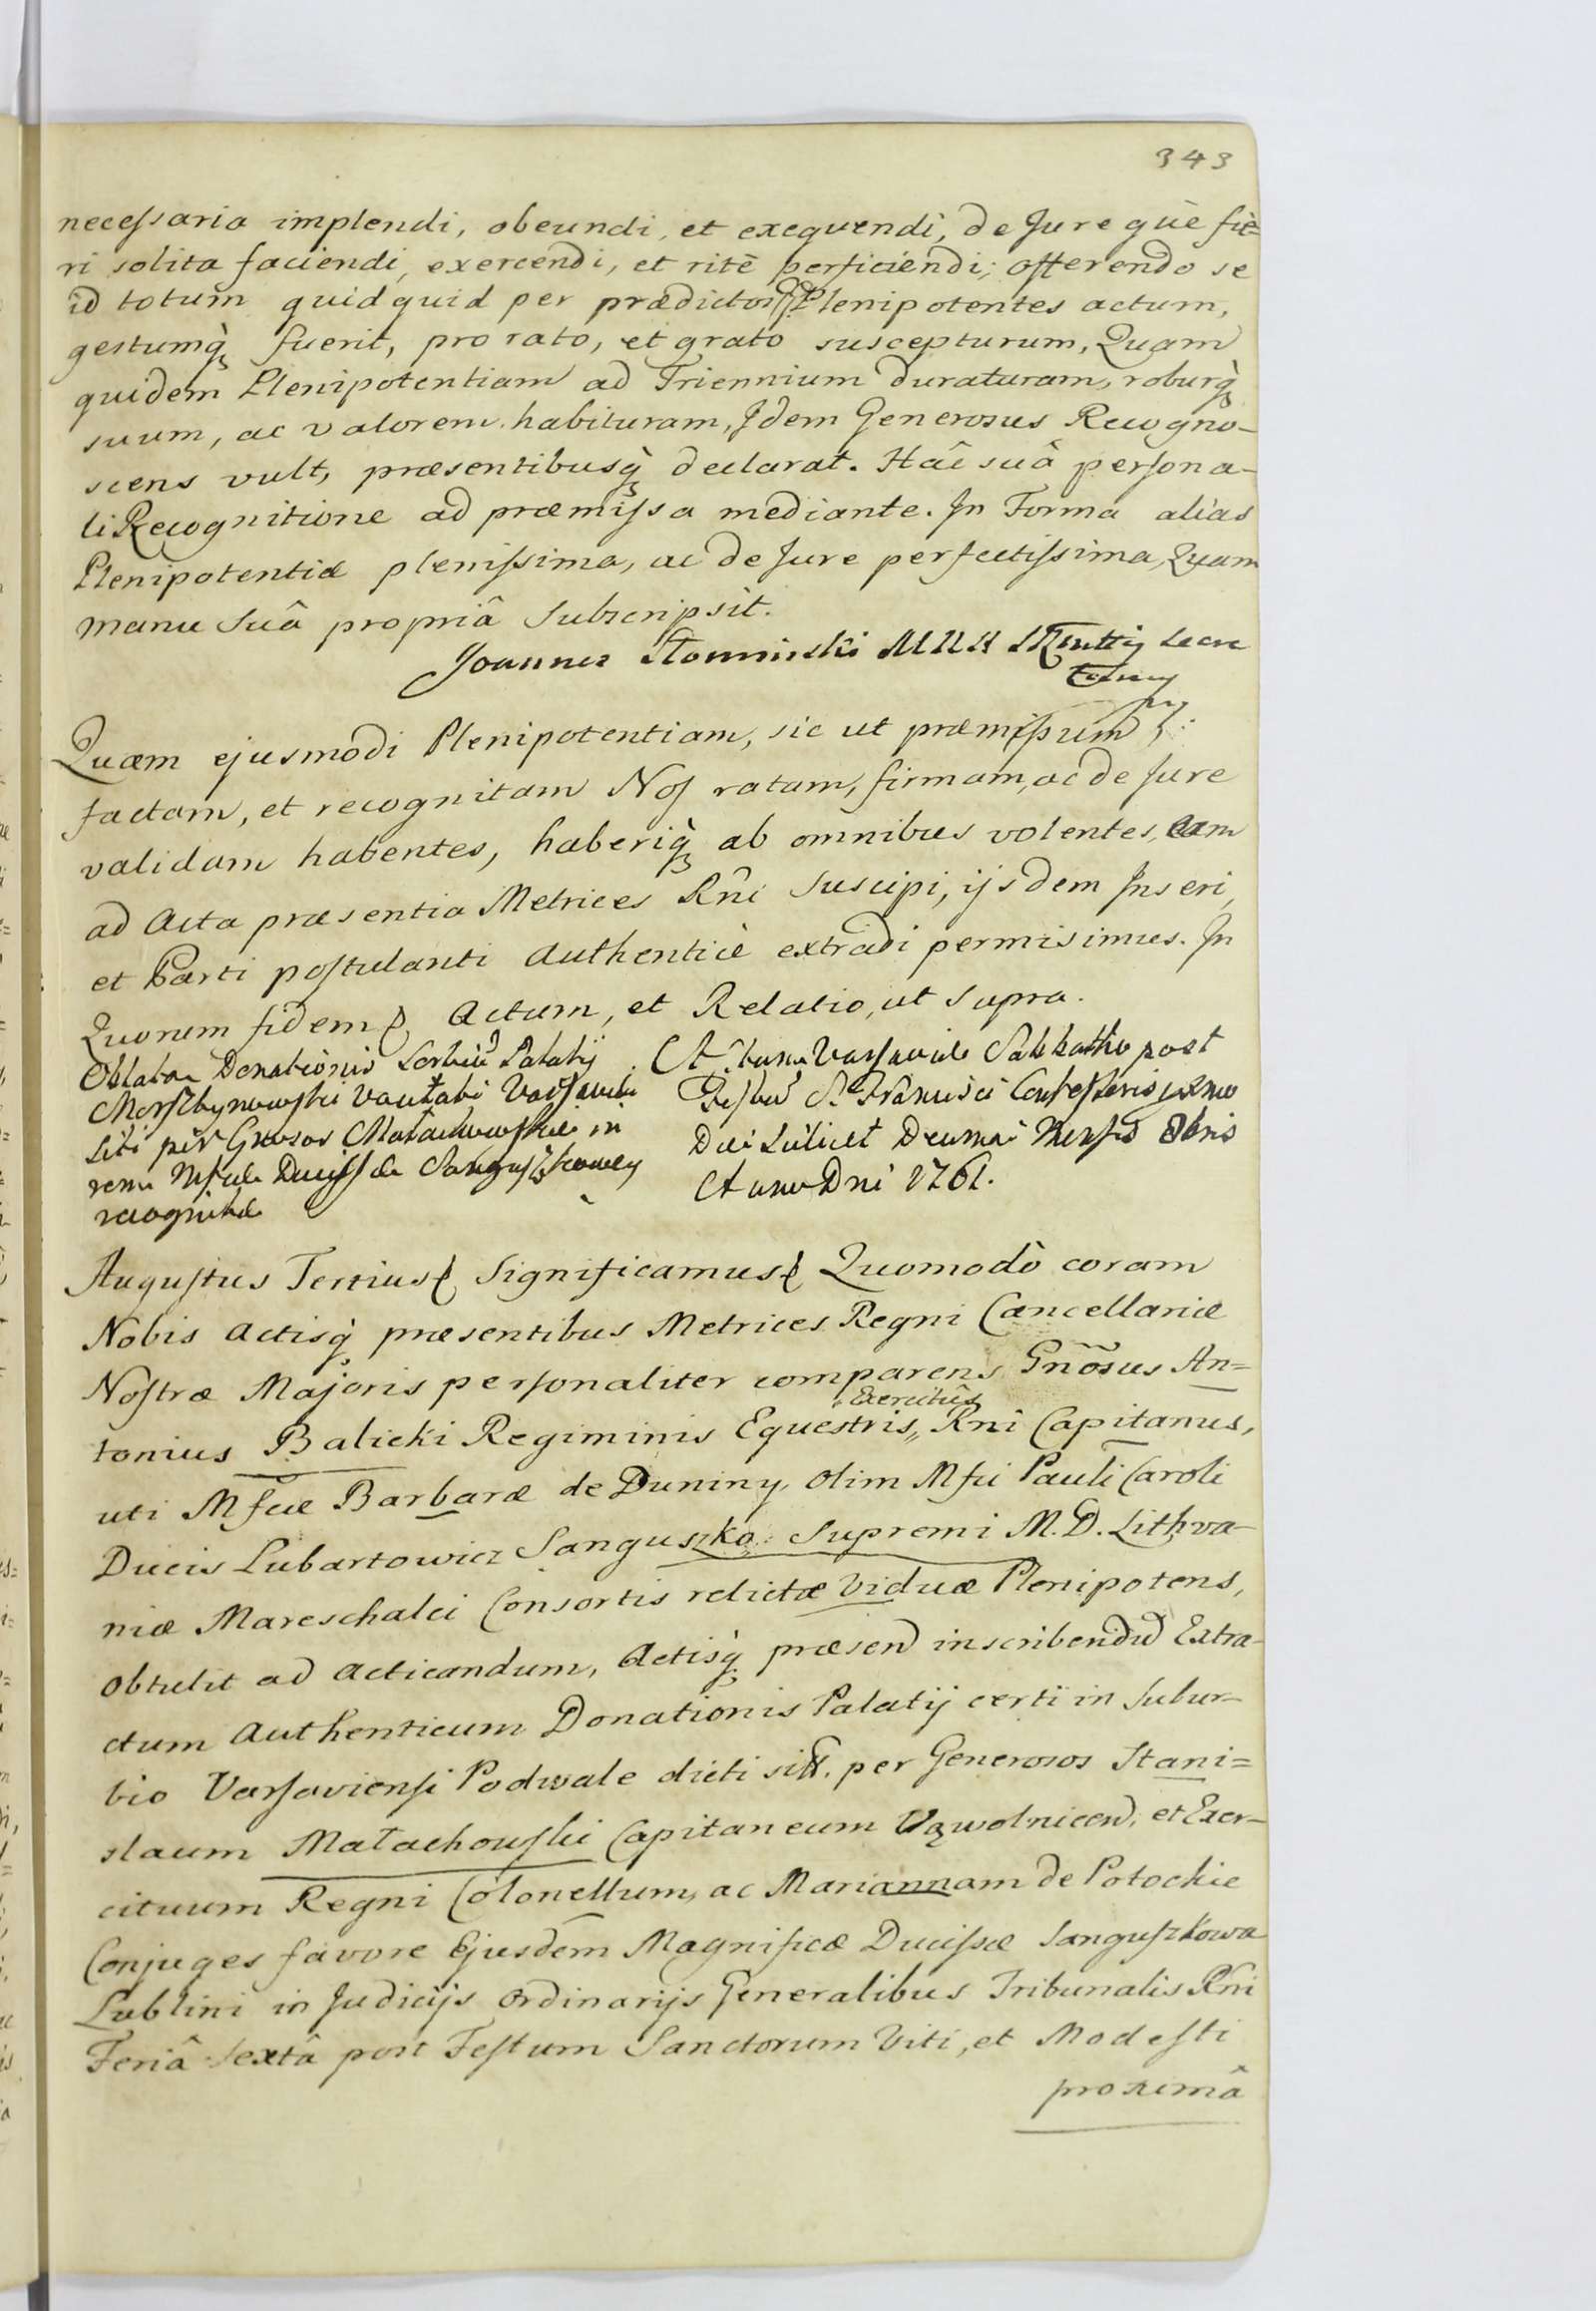 343
necessaria implendi, obeundi, et exequendi, de Jure que fie-
ri solita faciendi, exercendi, et ritè perficiendi; offerendo se
id totum quidquid per prædictos Plenipotentes actum,
gestumq̀ fuerit, pro rato, et grato suscepturum, Quam
quidem Plenipotentiam ad Triennium duraturam, roburq̀
suum, ac valorem habituram, Idem Generosus Recogno-
scens vult, præsentibusq̀ declarat. Hâc suâ persona-
li Recognitione ad præmissa mediante. In Forma alias
Plenipotentiæ plenissima, ac de Jure perfectissima, Quam
manu suâ propriâ subscripsit.
Joannes Słominski
Quam ejusmodi Plenipotentiam, sic ut præmissum
factam, et recognitam Nos ratam, firmam, ac de Jure
validam habentes, haberiq̀ ab omnibus volentes, eam
ad Acta præsentia Metrices Rñi suscipi, ijsdem Inseri,
et Parti postulanti Authenticè extradi permisimus. In
Quorum fidem Actum, et Relatio, ut supra.
Oblatæ Donationis Palatij
Varsaviæ
siti per Gnosos Małachowskie in
rem Mfcæ Ducissæ Sanguszkowey
recognitæ
Actum Varsaviæ Sabbatho post
Festum S. Francisci Confessoris
Die scilicet Decima Mensis 8bris
Anno Dni 1761.
Augustus Tertius Significamus Quomodò coram
Nobis Actisq̀ præsentibus Metrices Regni Cancellariæ
Nostræ Majoris personaliter comparens Gñosus An=
Exercitûs
tonius Balicki Regiminis Equestris,, Rñi Capitanus,
uti Mfcæ Barbaræ de Duniny, olim Mfci Pauli Caroli
Ducis Lubartowicz Sanguszko Supremi M.D. Lithva-
niæ Mareschalci Consortis relictæ Viduæ Plenipotens,
obtulit ad acticandum, Actisq̀ præsen inscribendum Extra-
ctum Authenticum Donationis Palatij certi in subur-
bio Varsaviensi Podwale dicti siti. per Generosos Stani=
slaum Małachowski Capitaneum Wąwolnicen. et Exer-
cituum Regni Colonellum, ac Mariannam de Potockie
Conjuges favore Ejusdem Magnificæ Ducissæ Sanguszkowa
Lublini in Judicijs Ordinarijs Generalibus Tribunalis Rñi
Feriâ sextâ post Festum Sanctorum Viti, et Modesti
proximâ